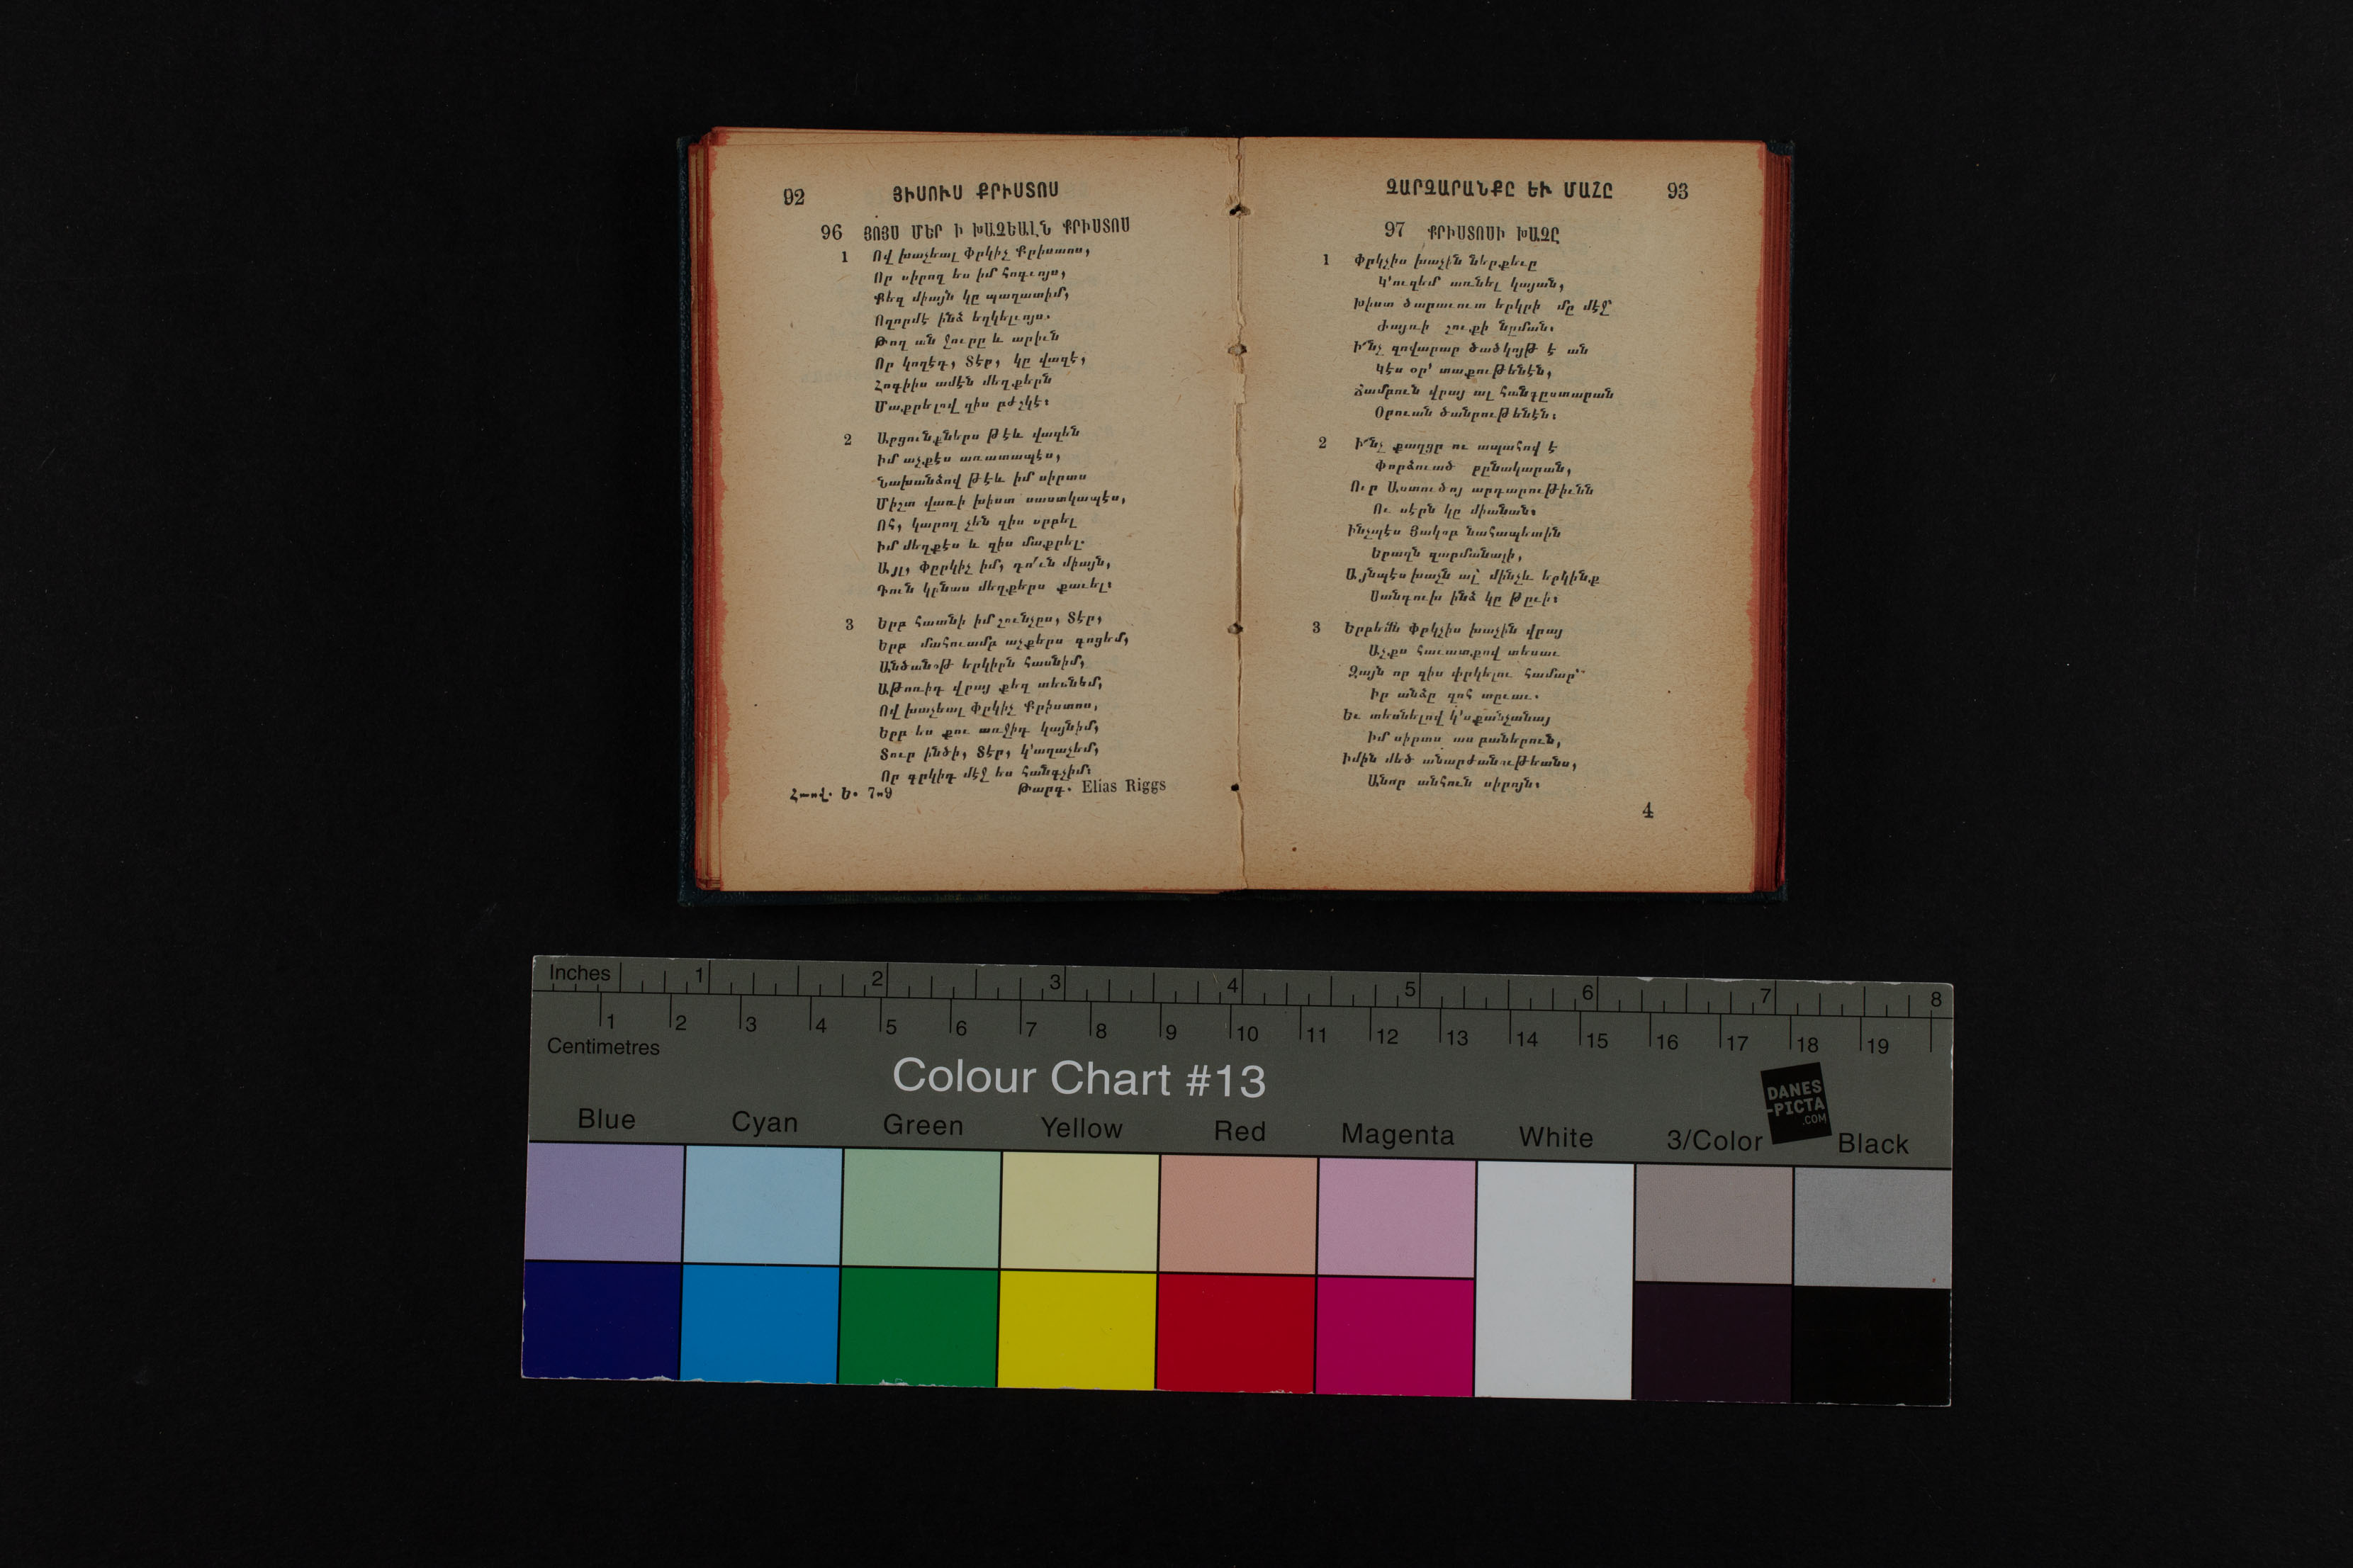 92
ՅԻՍՈՒՍ ՔՐԻՍՏՈՍ
96 ՅՈՅՍ ՄԵՐ Ի ԽԱՉԵԱԼՆ ՔՐԻՍՏՈՍ
1 Ով խաչեալ Փրկիչ Քրիստոս,
Որ սիրող ես իմ հոգւոյս,
Քեզ միայն կը պաղատիմ,
Ողորմէ ինձ եղկելւոյս.
Թող ան ջուրը և արիւն
Որ կողէդ, Տէր, կը վազէ,
Հոգիիս ամէն մեղքերն
Մաքրելով զիս բժշկէ։
2 Արցունքներս թէև վազեն
Իմ աչքէս առատապէս,
Նախանձով թէև իմ սիրտս
Միշտ վառի խիստ սաստկապէս,
Ոհ, կարող չեն զիս սրբել
Իմ մեղքէս և զիս մաքրել.
Այլ, Փըրկիչ իմ, դո՛ւն միայն,
Դուն կրնաս մեղքերս քաւել։
3 Երբ հատնի իմ շունչըս, Տէր,
Երբ մահուամբ աչքերս գոցեմ,
Անծանօթ երկիրն հասնիմ,
Աթոռիդ վրայ քեզ տեսնեմ,
Ով խաչեալ Փրկիչ Քրիստոս,
Երբ ես քու առջիդ կայնիմ,
Տուր ինծի, Տէր, կ՚աղաչեմ,
Որ գրկիդ մէջ ես հանգչիմ։
Հռով. Ե. 7-9
Թարգ. Elias Riggs
ՉԱՐՉԱՐԱՆՔԸ ԵՒ ՄԱՀԸ
93
97 ՔՐԻՍՏՈՍԻ ԽԱՉԸ
1 Փրկչիս խաչին ներքեւը
Կ՚ուզեմ առնել կայան,
Խիստ ծարաւուտ երկրի մը մէջ՝
Ժայռի շուքի նըման։
Ի՜նչ զովարար ծածկոյթ է ան
Կէս օր՚ տաքութենէն,
Ճամբուն վրայ ալ հանգըստարան
Օրուան ծանրութենէն։
2 Ի՜նչ քաղցր ու ապահով է
Փորձուած բընակարան,
Ուր Աստուծոյ արդարութիւնն
Ու սէրն կը միանան։
Ինչպէս Յակոբ նահապետին
Երազն զարմանալի,
Այնպէս խաչն ալ՝ մինչև երկինք
Սանդուխ ինձ կը թըւի։
3 Երբեմն Փրկչիս խաչին վրայ
Աչքս հաւատքով տեսաւ
Զայն որ զիս փրկելու համար՝
Իր անձը զոհ տըւաւ.
Եւ տեսնելով կ՚սքանչանայ
Իմ սիրտս աս բաներուն,
Իմին մեծ անարժանութեանս,
Անոր անհուն սիրոյն։
4
Inches 1 2 3 4 5 6 7 8
1 2 3 4 5 6 7 8 9 10 11 12 13 14 15 16 17 18 19
Centimetres
Colour Chart #13
DANES
-PICTA
.COM
Blue Cyan Green Yellow Red Magenta White 3/Color Black